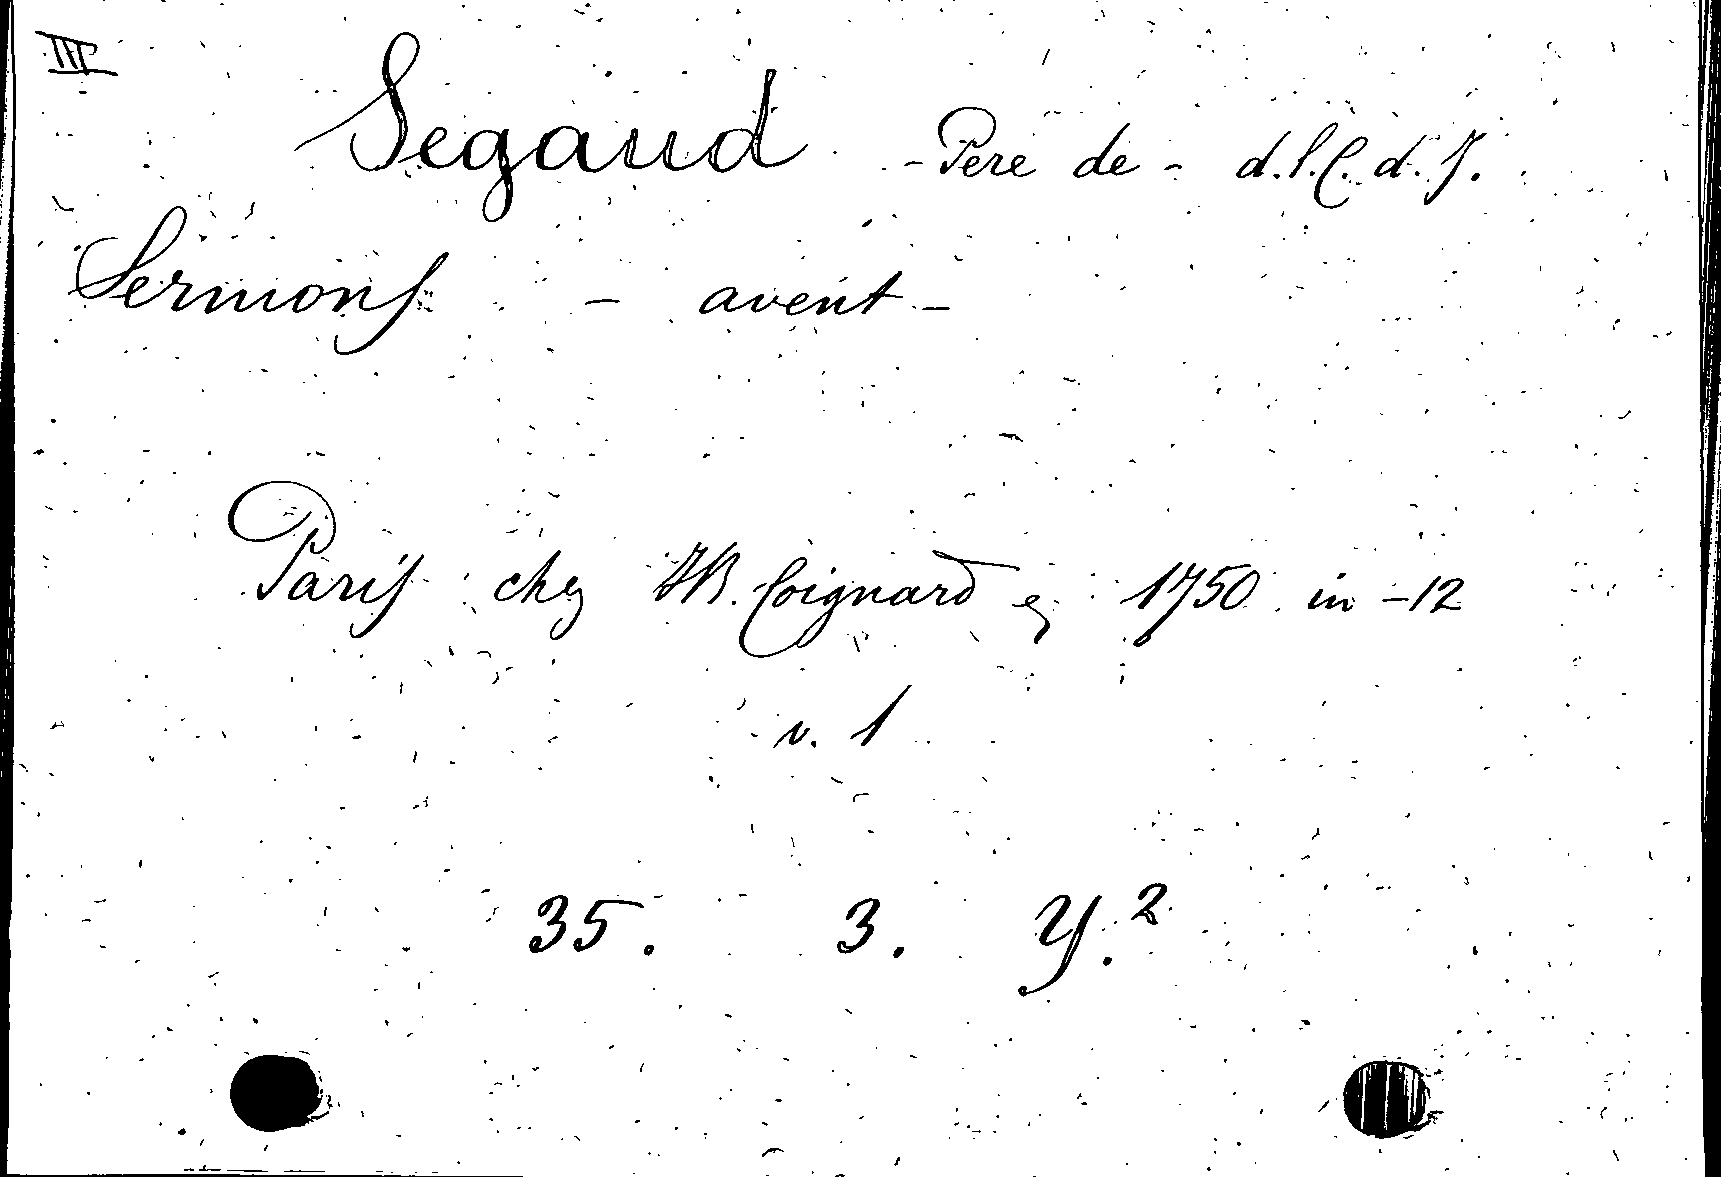 III
Segaud - Pere de - d. l. C. d. J.
Sermons - avent -
Paris chez JB. Coignard 1750 in -12
v. 1
35. 3. Y.²